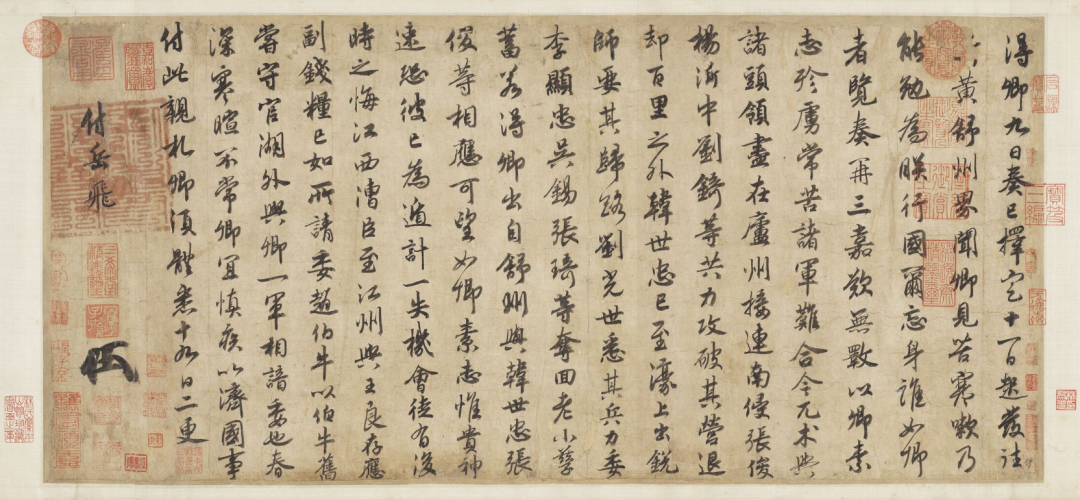 得卿九日奏已擇定十一日起發往
蘄黃舒州界聞卿見苦寒嗽乃
能勉為朕行國爾忘身誰如卿
者覽奏再三嘉歎無斁以卿素
志殄虜常苦諸軍難合今兀朮與
諸頭領盡在廬州接連南侵張俊
楊沂中劉錡等共力攻破其營退
却百里之外韓世忠已至濠上出銳
師要其歸路劉光世悉其兵力委
李顯忠吳錫張琦等奪回老小孳
蓄若得卿出自舒州與韓世忠張
俊等相應可望如卿素志惟貴神
速恐彼已為遁計一失機會徒有後
時之悔江西漕臣至江州與王良存應
副錢糧已如所請委趙伯牛以伯牛舊
嘗守官湖外與卿一軍相諳委也春
深寒暄不常卿宜慎疾以濟國事
付此親札卿須體悉十九日二更
付岳飛